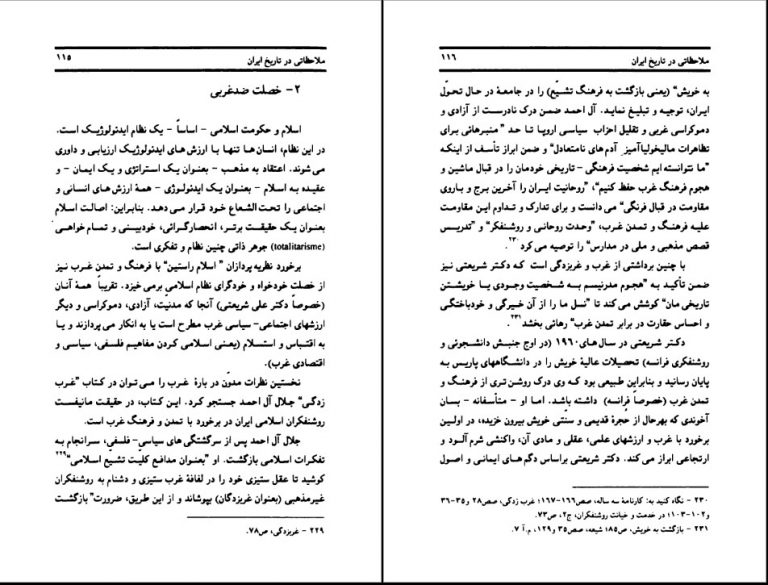 ملاحظاتی در تاریخ ایران ۱۱۵
۲- خصلت ضدغربی
اسلام و حکومت اسلامی - اساساً - یک نظام ایدئولوژیک است.
در این نظام، انسان‌ها تنها با ارزش‌های ایدئولوژیک ارزیابی و داوری
می‌شوند. اعتقاد به مذهب - بعنوان یک استراتژی و یک ایمان - و
عقیده به اسلام - بعنوان یک ایدئولوژی - همهٔ ارزش‌های انسانی و
اجتماعی را تحت‌الشعاع خود قرار می‌دهد. بنابراین: اصالت اسلام
بعنوان یک حقیقت برتر، انحصارگرائی، خودبینی و تمام خواهی
(totalitarisme) جوهر ذاتی چنین نظام و تفکری است.
برخورد نظریه پردازان "اسلام راستین" با فرهنگ و تمدن غرب نیز
از خصلت خودخواه و خودگرای نظام اسلامی برمی‌خیزد. تقریباً همهٔ آنان
(خصوصاً دکتر علی شریعتی) آنجا که مدنیّت، آزادی، دموکراسی و دیگر
ارزشهای اجتماعی- سیاسی غرب مطرح است یا به انکار می‌پردازند و یا
به اقتباس و استسلام (یعنی اسلامی کردن مفاهیم فلسفی، سیاسی و
اقتصادی غرب).
نخستین نظرات مدوّن در بارهٔ غرب را می‌توان در کتاب "غرب
زدگی" جلال آل احمد جستجو کرد. این کتاب، در حقیقت مانیفست
روشنفکران اسلامی ایران در برخورد با تمدن و فرهنگ غرب است.
جلال آل احمد پس از سرگشتگی های سیاسی- فلسفی، سرانجام به
تفکرات اسلامی بازگشت. او "بعنوان مدافع کلیّت تشیّع اسلامی"۲۲۹
کوشید تا عقل ستیزی خود را در لفافهٔ غرب ستیزی و دشنام به روشنفکران
غیرمذهبی (بعنوان غربزدگان) بپوشاند و از این طریق، ضرورت" بازگشت
۲۲۹ - غربزدگی، ص۷۸.
ملاحظاتی در تاریخ ایران ۱۱۶
به خویش" (یعنی بازگشت به فرهنگ تشیّع) را در جامعهٔ در حال تحوّل
ایران، توجیه و تبلیغ نماید. آل احمد ضمن درک نادرست از آزادی و
دموکراسی غربی و تقلیل احزاب سیاسی اروپا تا حد "منبرهائی برای
تظاهرات مالیخولیاآمیز آدم های نامتعادل" و ضمن ابراز تأسف از اینکه
"ما نتوانسته ایم شخصیت فرهنگی - تاریخی خودمان را در قبال ماشین و
هجوم فرهنگ غرب حفظ کنیم"، "روحانیت ایران را آخرین برج و باروی
مقاومت در قبال فرنگی" می‌دانست و برای تدارک و تداوم این مقاومت
علیه فرهنگ و تمدن غرب، "وحدت روحانی و روشنفکر" و "تدریس
قصص مذهبی و ملی در مدارس" را توصیه می‌کرد ۲۳۰.
با چنین برداشتی از غرب و غربزدگی است که دکتر شریعتی نیز
ضمن تأکید به "هجوم مدرنیسم به شخصیت وجودی یا خویشتن
تاریخی مان" کوشش می‌کند تا "نسل ما را از آن خیرگی و خودباختگی
و احساس حقارت در برابر تمدن غرب" رهائی بخشد ۲۳۱.
دکتر شریعتی در سال های ۱۹۶۰ (در اوج جنبش دانشجوئی و
روشنفکری فرانسه) تحصیلات عالیهٔ خویش را در دانشگاههای پاریس به
پایان رسانید و بنابراین طبیعی بود که وی درک روشن تری از فرهنگ و
تمدن غرب (خصوصاً فرانسه) داشته باشد. اما او - متأسفانه - بسان
آخوندی که بهرحال از حجرهٔ قدیمی و سنّتی خویش بیرون خزیده، در اولین
برخورد با غرب و ارزشهای علمی، عقلی و مادی آن، واکنشی شرم آلود و
ارتجاعی ابراز می‌کند. دکتر شریعتی براساس دگم های ایمانی و اصول
۲۳۰ - نگاه کنید به: کارنامهٔ سه ساله، صص۱۶۶-۱۶۷؛ غرب زدگی، صص۲۸ و ۳۵-۳۶
و۱۰۲-۱۰۳؛ در خدمت و خیانت روشنفکران، ج۲، ص۷۳.
۲۳۱ - بازگشت به خویش، ص۸۵؛ شیعه، صص۳۵ و۱۲۹، م.آ ۷.